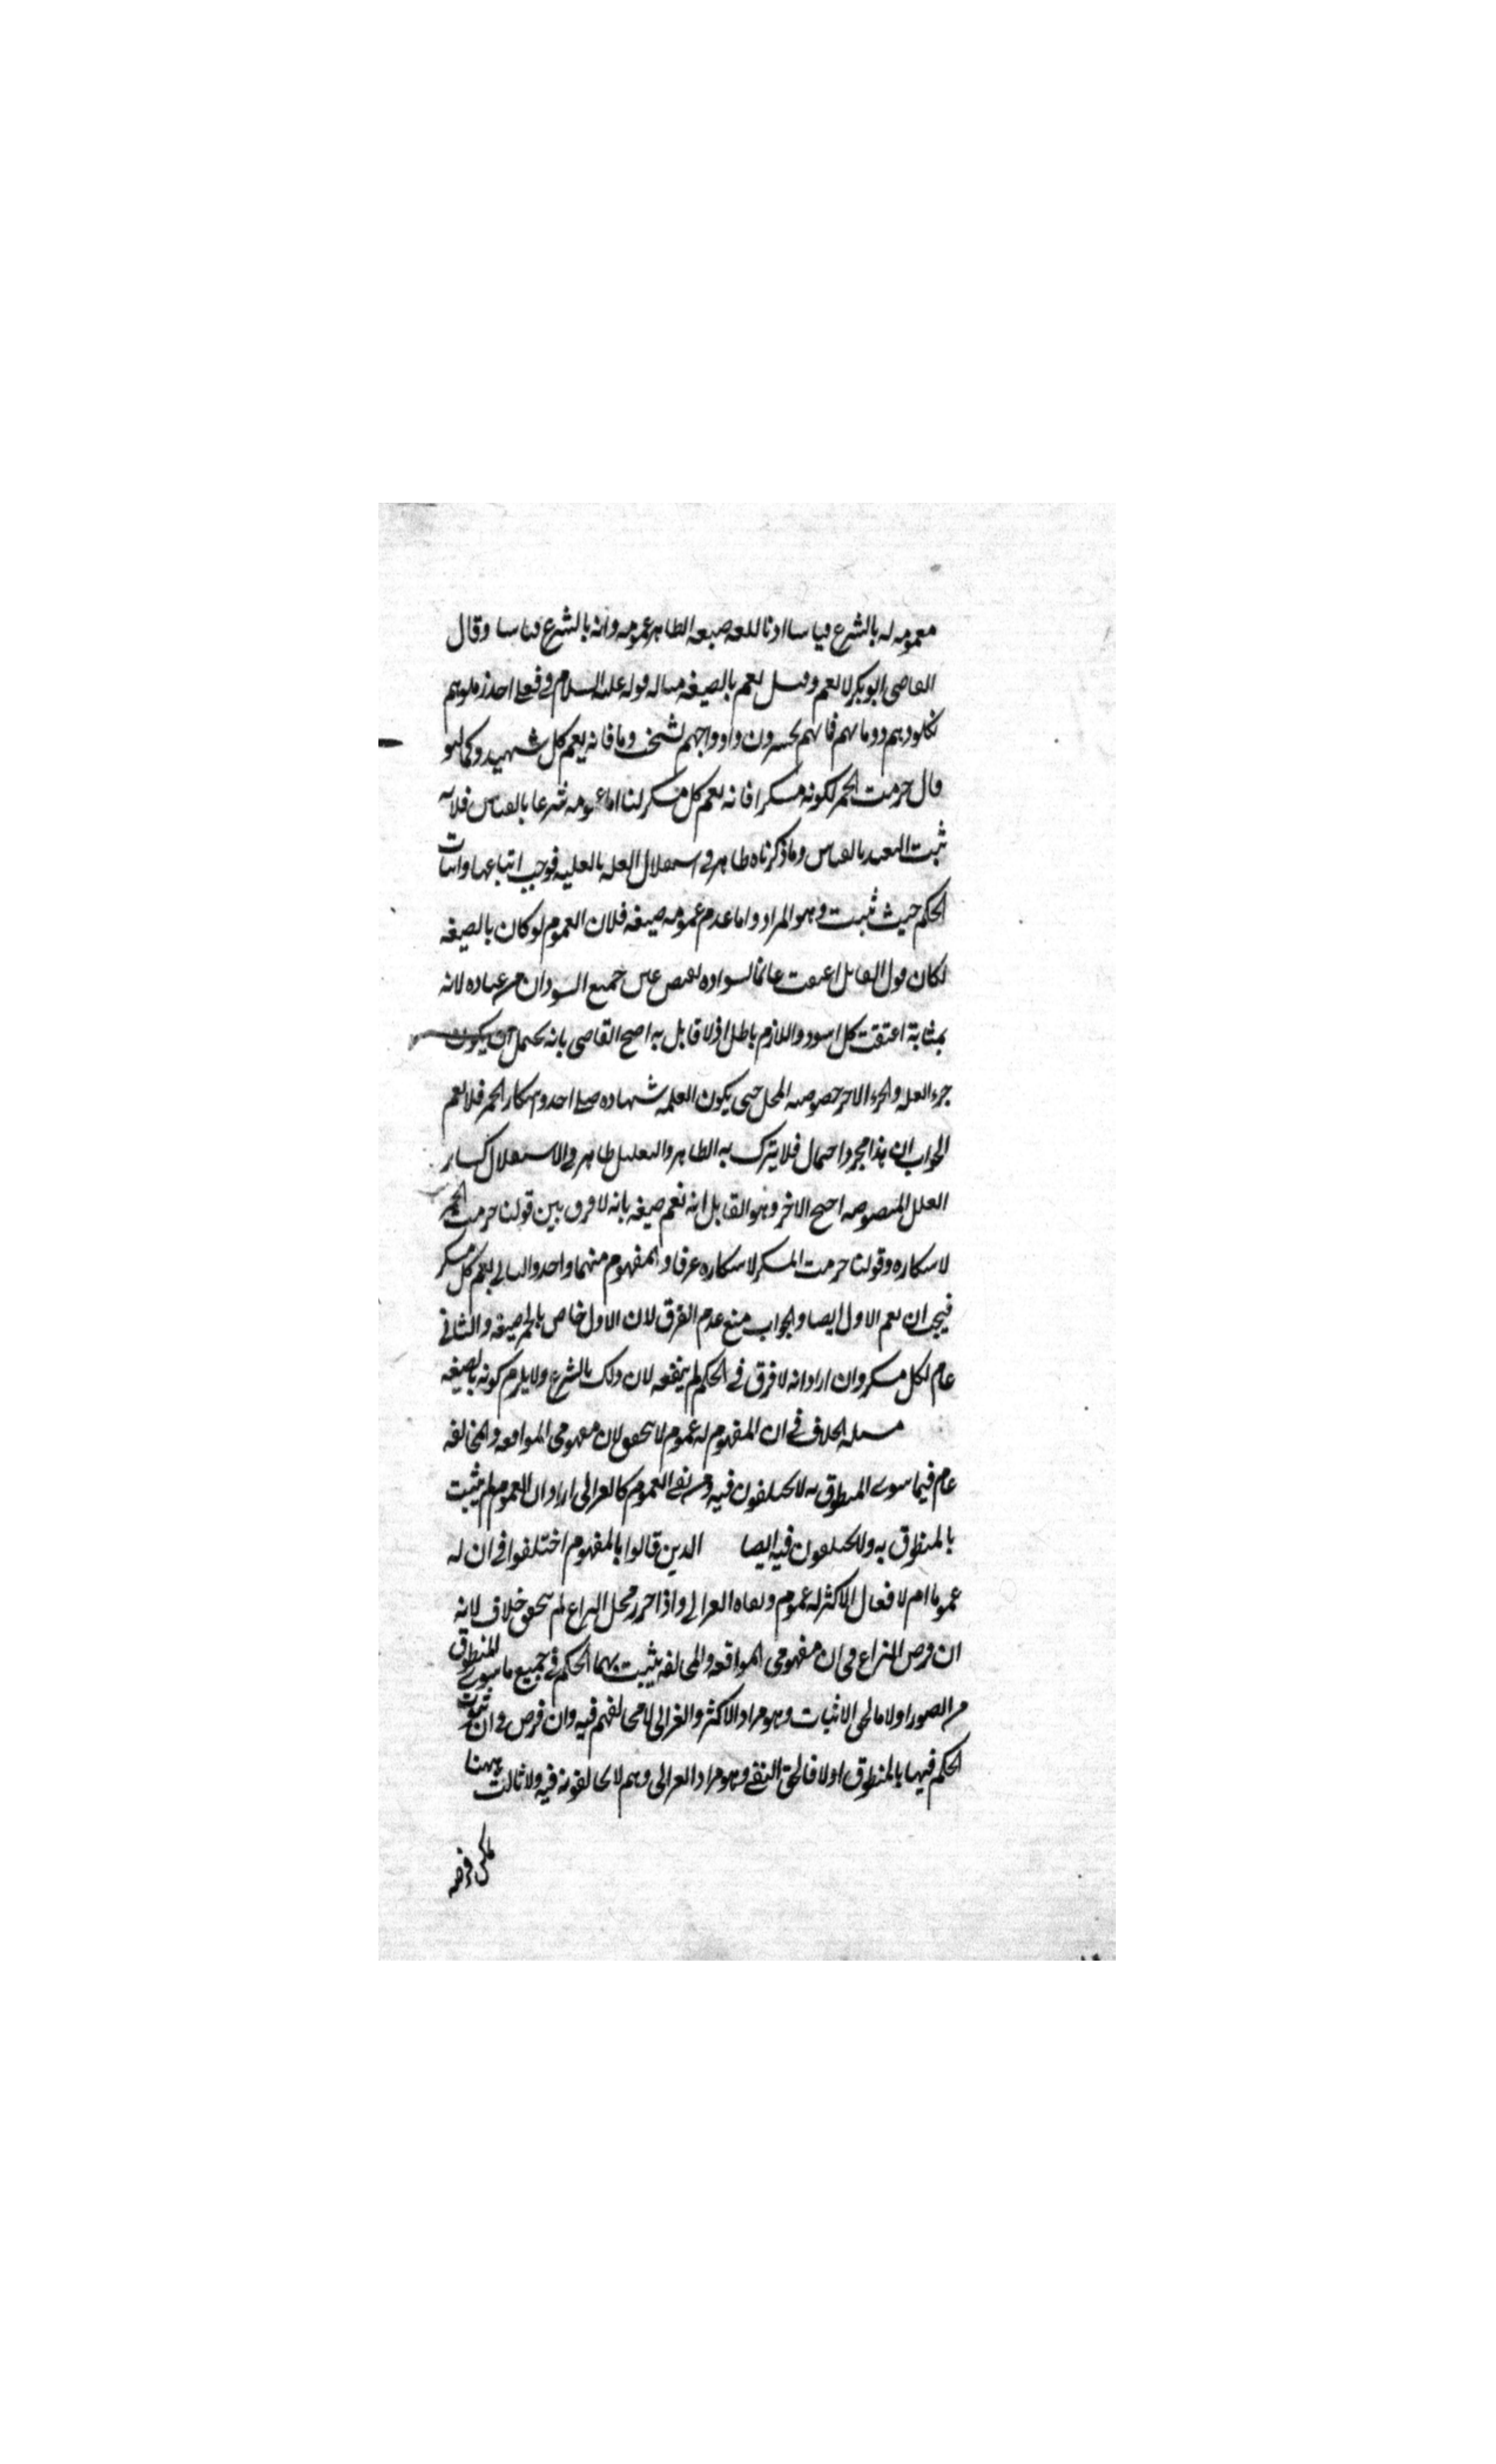 فعمومه له بالشرع قياسا او باللغة صيغة الظاهر عمومه وانه بالشرع قياسا وقال
القاضي ابو بكر لا يعم وقيل يعم بالصيغة مثاله قوله عليه السلام في قتلى احد زملوهم
بكلومهم ودمائهم فانهم يحشرون واوداجهم تشخب دما فانه يعم كل شهيد وكما لو
قال حرمت الخمر لكونه مسكرا فانه يعم كل مسكر لنا اما عمومه شرعا بالقياس فلانه
ثبت التعبد بالقياس وما ذكرناه ظاهر في استقلال العلة بالعلية فوجب اتباعها واثبات
الحكم حيث ثبت وهو المراد واما عدم عمومه صيغة فلان العموم لو كان بالصيغة
لكان قول القائل اعتقت غانما لسواده يقتضي عتق جميع السودان من عباده لانه
بمثابة اعتقت كل اسود واللازم باطل اذ لا قايل به احتج القاضي بانه يحتمل ان يكون
جزء العلة والجزء الاخر خصوصية المحل حتى يكون العلة شهادة قتلى احد واسكار الخمر فلا يعم
الجواب ان هذا مجرد احتمال فلا يترك به الظاهر والتعليل ظاهر في الاستقلال كساير
العلل المنصوصة احتج الاخر وهو القايل انه يعم صيغة بانه لا فرق بين قولنا حرمت الخمر
لاسكاره وقولنا حرمت المسكر لاسكاره عرفا والمفهوم منهما واحد والثاني يعم كل مسكر
فيجب ان يعم الاول ايضا والجواب منع عدم الفرق لان الاول خاص بالخمر صيغة والثاني
عام لكل مسكر وان اراد انه لا فرق في الحكم لم ينفعه لان ذلك بالشرع ولا يلزم كونه بالصيغة
مسئلة الخلاف في ان المفهوم له عموم لا يتحقق لان مفهومي الموافقة والمخالفة
عام فيما سوى المنطوق به لا يختلفون فيه ومن نفى العموم كالغزالي اراد ان العموم لم يثبت
بالمنطوق به ولا يختلفون فيه ايضا الذين قالوا بالمفهوم اختلفوا في ان له
عموما ام لا فقال الاكثر له عموم ونفاه الغزالي واذا حرر محل النزاع لم يتحقق خلاف لانه
ان فرض النزاع في ان مفهومي الموافقة والمخالفة يثبت بهما الحكم في جميع ما سوى المنطوق
من الصور اولا فالحق الاثبات وهو مراد الاكثر والغزالي لا يخالفهم فيه وان فرض في ان ثبوت
الحكم فيها بالمنطوق اولا فالحق النفي وهو مراد الغزالي وهم لا يخالفونه فيه ولا ثالث ههنا
يمكن فرضه